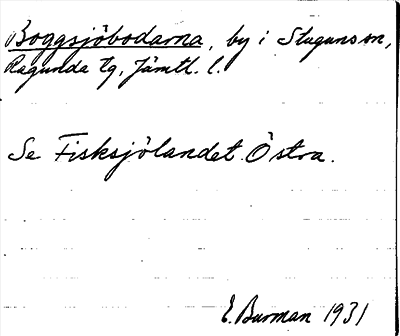 Boggsjöbodarna, by i Stuguns sn,
Ragunda tg, Jämtl. l.
Se Fisksjölandet Östra.
E. Burman 1931